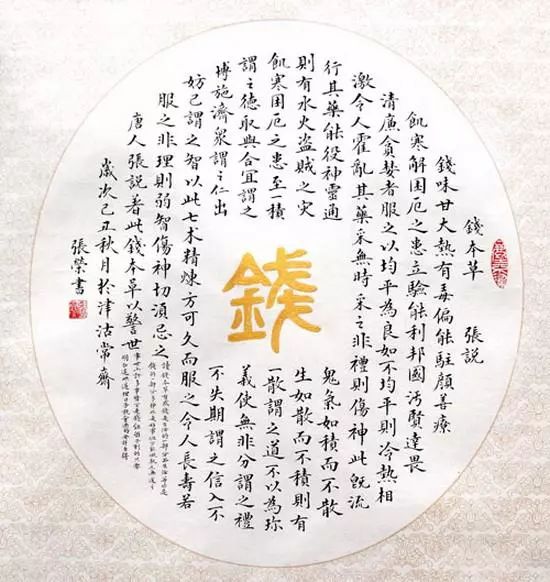 錢本草 張説
錢味甘大熱有毒偏能駐顏善療
飢寒解困厄之患立驗能利邦國汚賢達畏
清廉貪婪者服之以均平為良如不均平則冷熱相
激令人霍亂其藥采無時采之非禮則傷神此既流
行其藥能役神靈通 鬼氣如積而不散
則有水火盜賊之灾 生如散而不積則有
飢寒困厄之患至一積 一散謂之道不以為珎
謂之德取與合宜謂之 義使無非分謂之禮
博施濟眾謂之仁出 不失期謂之信入不
錢
妨己謂之智以此七术精煉方可久而服之令人長壽若
服之非理則弱智傷神切須忌之
唐人張説著此錢本草以警世
歲次己丑秋月於津沽常齋
張榮書